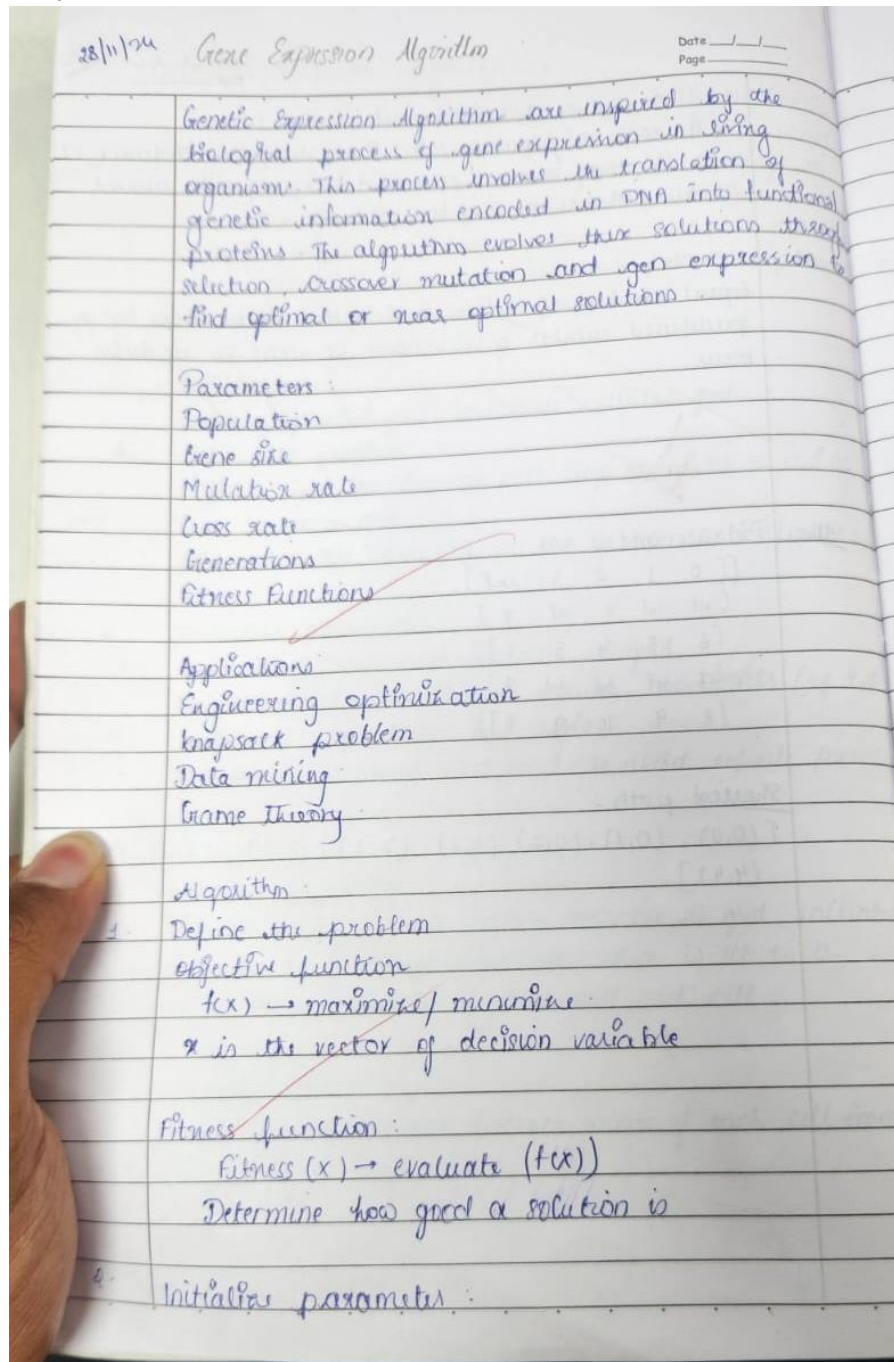 28/11/24 Gene Expression Algorithm
Date __/__/__
Page
Genetic Expression Algorithm are inspired by the
biological process of gene expression in living
organism. This process involves the translation of
genetic information encoded in DNA into functional
proteins. The algorithm evolves these solutions through
selection, crossover mutation and gen expression to
find optimal or near optimal solutions
Parameters :
Population
Gene size
Mutation rate
Cross rate
Generations
Fitness Functions
Applications
Engineering optimization
knapsack problem
Data mining
Game Theory
Algorithm :
1. Define the problem
objective function
f(x) → maximize/ minimize.
x is the vector of decision variable
Fitness function :
Fitness (x) → evaluate (f(x))
Determine how good a solution is
2. Initialize parameter :